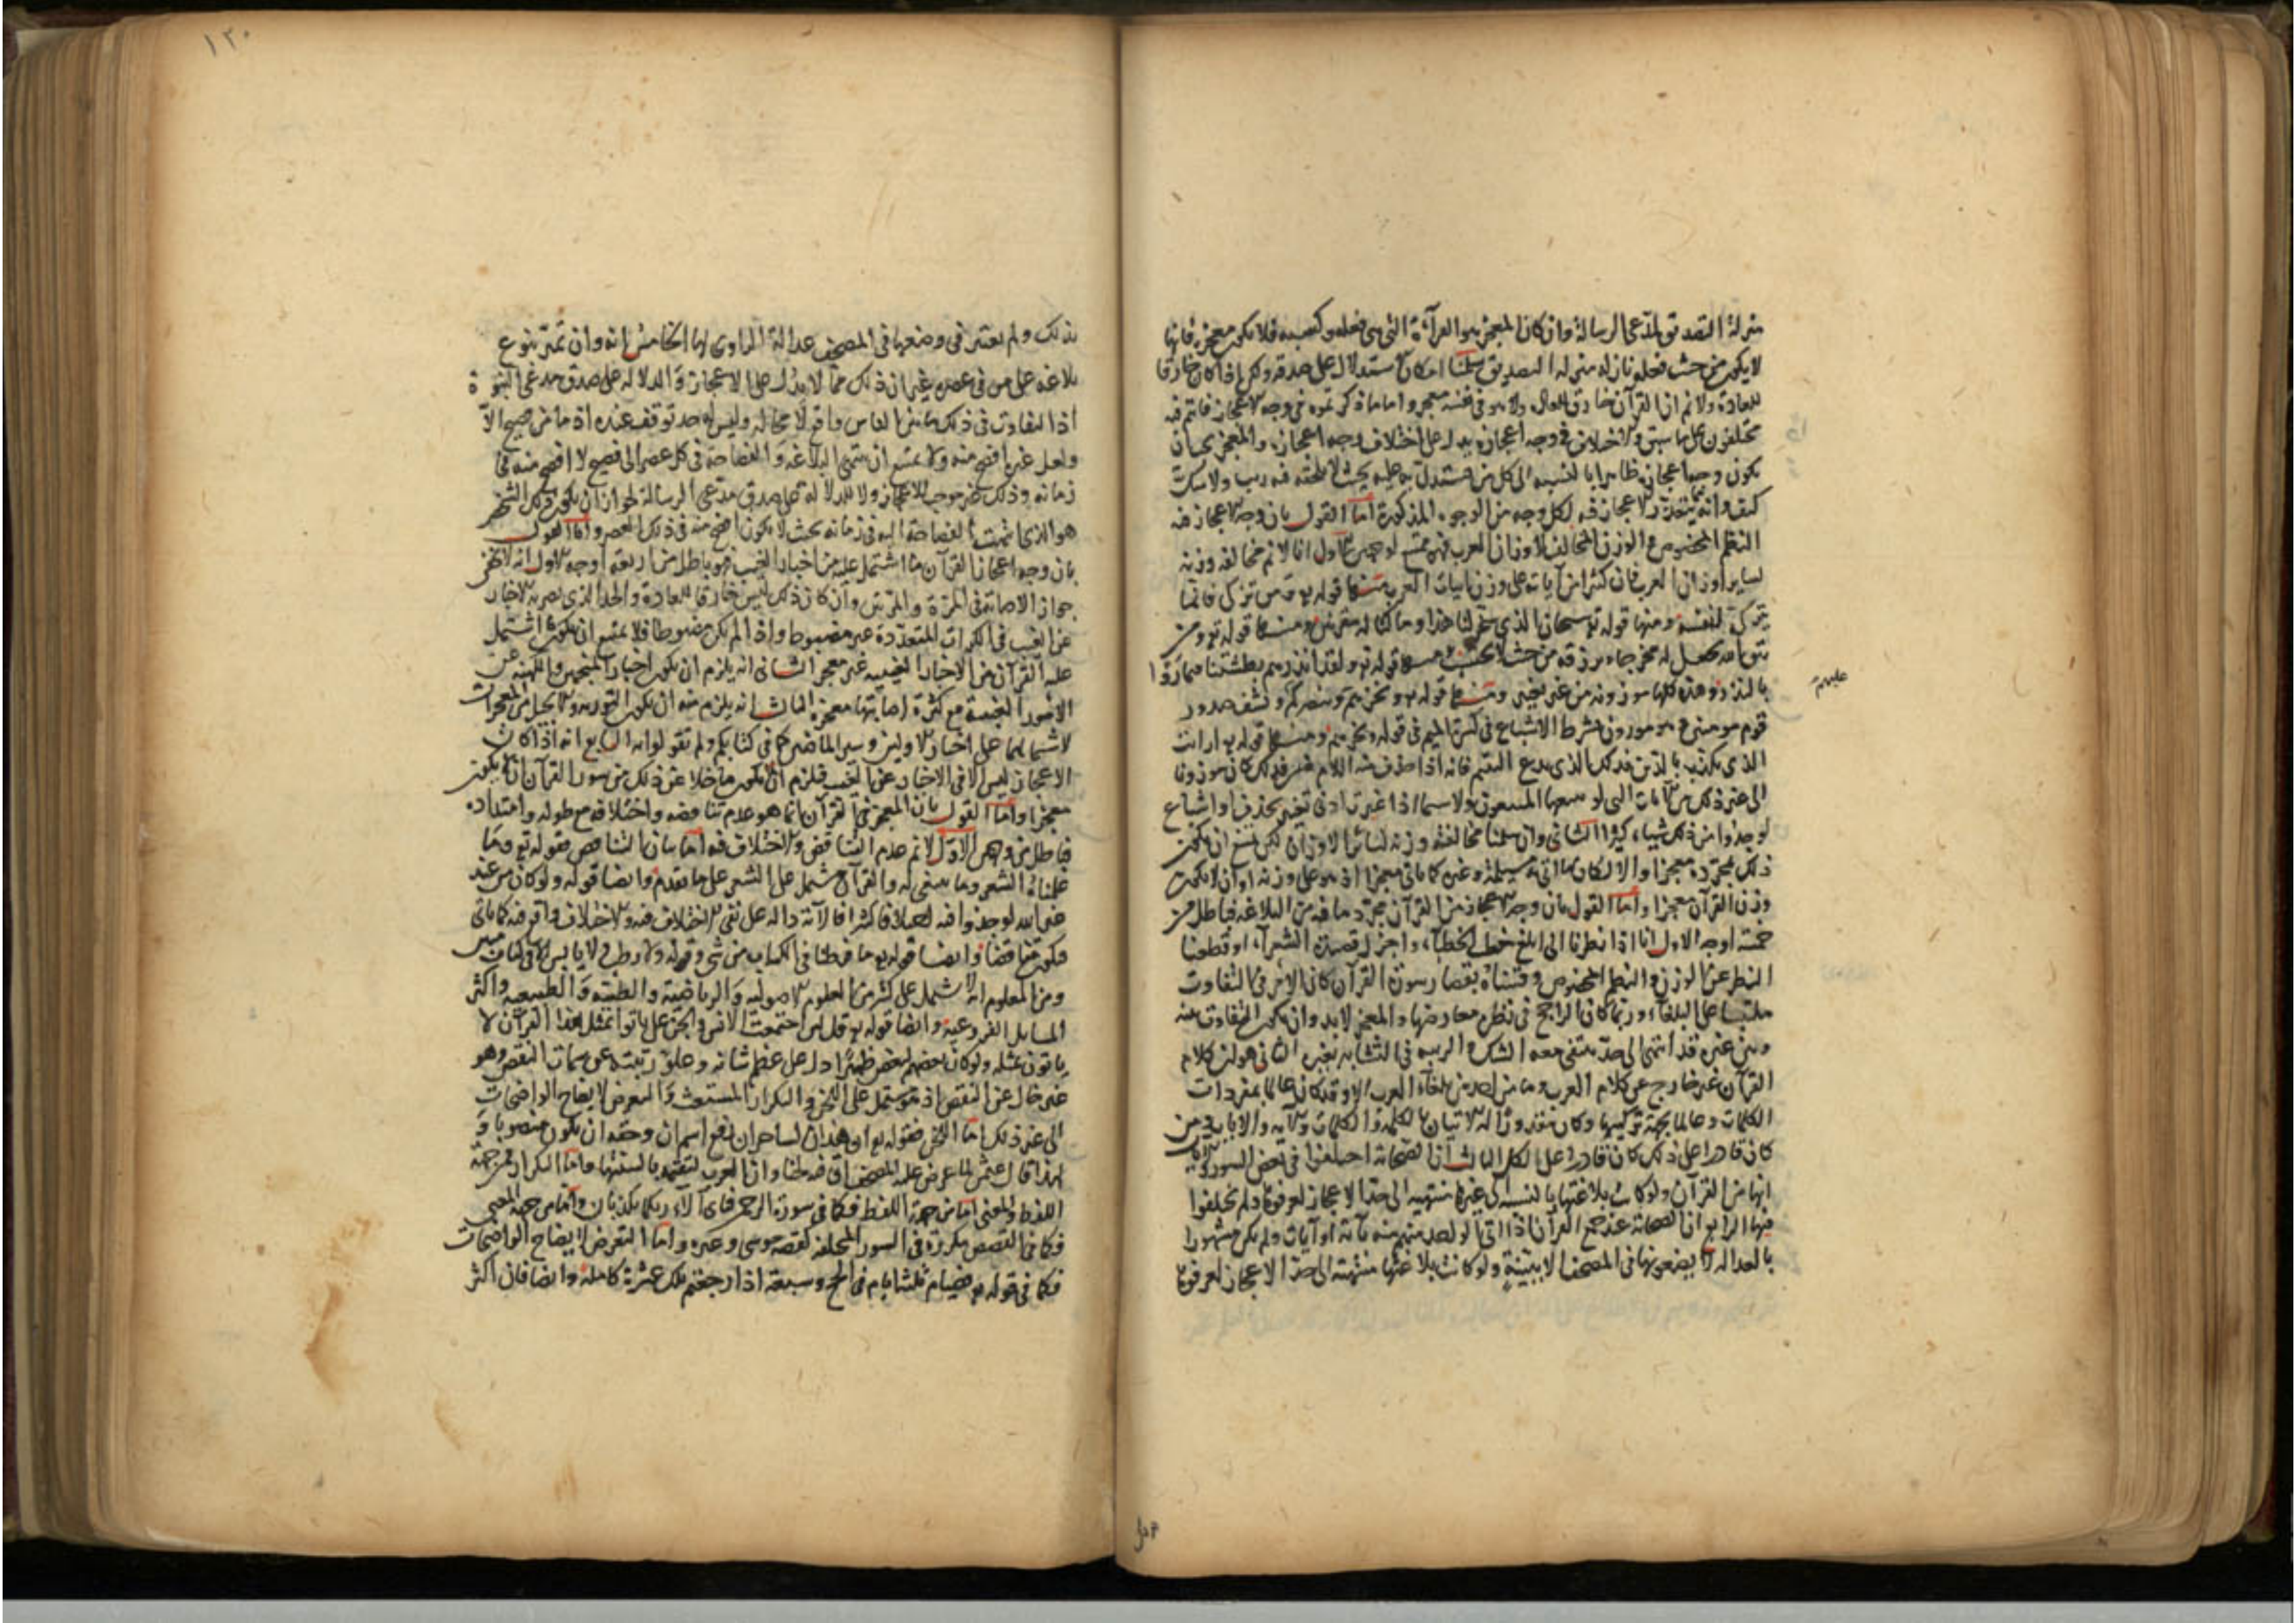 منزلة التصديق لمدعى الرسالة وان كان المعجز هو القرآءة التى هى فعله وكسبه فلا يكون معجزة فانها
لا يكون من حيث فعله نازله منزله التصديق سلمنا امكان الاستدلال على صدقه ولكن اذا كان خارقا
للعادة ولا نم ان القرآن خارق للعادة ولا هو فى نفسه معجز واما ما ذكرتموه فى وجه الاعجاز فانتم فيه
مختلفون على ما سبق والاختلاف فى وجه اعجازه يدل على اختلاف وجه اعجازه والمعجز يجب ان
يكون وجه اعجازه ظاهرا بالنسبه الى كل من يستدل به عليه بحيث لا يلحقه فيه ريب ولا شك
كيف وانه يتعذر الاعجاز فيه لكل وجه من الوجوه المذكورة اما القول بان وجه الاعجاز فيه
النظم المخصوص والوزن المخالف لاوزان العرب فهو ممتنع لوجهين الاول انا لا نم مخالفه وزنه
لساير اوزان العرب فان كثيرا من آياته على وزن ابيات العرب منها قوله تع ومن تزكى فانما
يتزكى لنفسه ومنها قوله تع سبحان الذى سخر لنا هذا وما كنا له مقرنين ومنها قوله تع ومن
يتق الله يجعل له مخرجا ويرزقه من حيث لا يحتسب ومنها قوله تع ولقد انذرهم بطشتنا فتماروا
بالنذر وهذه كلها موزونه من غير تغيير ومنها قوله تع ويخزهم وينصركم ويشف صدور
عليهم
قوم مومنين هو موزون بشرط الاشباع فى كسرة الميم فى قوله ويخزهم ومنها قوله تع ارايت
الذى يكذب بالدين فذلك الذى يدع اليتيم فانه اذا حذف منه اللام من فذلك كان موزونا
الى غير ذلك من الآيات التى لو تتبعها المتتبعون ولا سيما اذا غيرت ادنى تغيير بحذف او اشباع
لوجدوا من ذلك شيئاء كثيرا الثانى وان سلمنا مخالفة وزنه لسائر الاوزان لكن يمتنع ان يكون
ذلك بمجرده معجزا والا لكان ما اتى به مسيلمة وغيره كما ياتى معجزا اذ هو على وزنه او ان لا يكون
وزن القرآن معجزا واما القول بان وجه الاعجاز من القرآن مجرد ما فيه من البلاغه فباطل من
خمسة اوجه الاول انا اذا نظرنا الى ابلغ خطب الخطبآء واجزل قصيدة الشعرآء وقطعنا
النظر عن الوزن والنظم المخصوص وقسناه بقصار سورة القرآن كان الامر فى التفاوت
ملتبسا على البلغاء وربما كان الراجح فى نظره معارضها والمعجز لابد وان يكون التفاوت بينه
وبين غيره قد انتهى الى حد ينتفى معه الشك والريبه فى التشابه بغيره الثانى هو ان كلام
القرآن غير خارج عن كلام العرب وما من احد من بلغآء العرب الا وقد كان عالما بمفردات
الكلمات وعالما بجهة تركيبها وكان مقدورا له الاتيان بالكلمة والكلمات والآيه والايات ومن
كان قادرا على ذلك كان قادرا على الكل الثالث ان الصحابة اختلفوا فى بعض السور والآيات
انها من القرآن ولو كانت بلاغتها بالنسبه الى غيرها منتهيه الى حد الاعجاز لعرفوها ولم يختلفوا
فيها الرابع ان الصحابة عند جمع القرآن اذا اتى الواحد منهم منه بآية او آيات ولم يكن مشهورا
بالعداله لا يضعونها فى المصحف الا ببينة ولو كانت بلاغتها منتهيه الى حد الاعجاز لعرفوها
١٣٠
بذلك ولم يعتبر فى وضعها فى المصحف عدالة الراوى لها الخامس انه وان تميز بنوع
بلاغه على من فى عصره غير ان ذلك مما لا يدل على الاعجاز والدلاله على صدق مدعى النبوة
اذ التفاوت فى ذلك بين الناس واقع لا محاله وليس له حد توقف عنده اذ ما من فصيح الا
ولعل غيره افصح منه ولا يمتنع ان تنتهى البلاغه والفصاحة فى كل عصر الى فصيح لا افصح منه فى
زمانه وذلك غير موجب للاعجاز ولا للدلالة على صدق مدعى الرسالة لجواز ان يكون ذلك الشخص
هو الذى انتهت الفصاحة اليه فى زمانه بحيث لا يكون افصح منه فى ذلك العصر واما القول
بان وجه اعجاز القرآن ما اشتمل عليه من اخبار الغيب فهو باطل من اربعة اوجه الاول انه لا يخفى
جواز الاصابة فى المرة والمرتين وان كان ذلك ليس خارقا للعادة والحد الذى يصير به الاخبار
عن الغيب فى الكرات المتعددة غير مضبوط واذا لم يكن مضبوطا فلا يمتنع ان يكون ما اشتمل
عليه القرآن من الاخبار الغيبيه غير معجز الثانى انه يلزم ان يكون اخبار المنجمين والكهنه عن
الامور الغيبية مع كثرة اصابتها معجزة الثالث انه يلزم منه ان يكون التوريه والانجيل من المعجزات
لاشتمالهما على اخبار الاولين وسير الماضين كما فى كتابكم ولم تقولوا به الرابع انه اذا كان
الاعجاز ليس الا فى الاخبار عن الغيب فيلزم ان يكون ما خلا عن ذلك من سور القرآن ان لا يكون
معجزا واما القول بان المعجز فى القرآن انما هو عدم تناقضه واختلافه مع طوله وامتداده
فباطل من وجهين الاول لا نم عدم التناقض والاختلاف فيه اما بيان التناقض فقوله تع وما
علمناه الشعر وما ينبغى له والقرآن مشتمل على الشعر على ما تقدم وايضا قوله ولو كان من عند
غير الله لوجدوا فيه اختلافا كثيرا فالآية داله على نفى الاختلاف فيه والاختلاف واقع فيه كما ياتى
فيكون متناقضا وايضا قوله تع ما فرطنا فى الكتاب من شئ وقوله ولا رطب ولا يابس الا فى كتاب مبين
ومن المعلوم انه لا يشتمل على كثير من العلوم الاصوليه والرياضية والطبيه والطبيعيه واكثر
المسايل الفروعية وايضا قوله تع قل لئن اجتمعت الانس والجن على ان ياتوا بمثل هذا القرآن لا
ياتون بمثله ولو كان بعضهم لبعض ظهيرا دل على عظم شانه وعلو رتبته عن سمات النقص وهو
غير خال عن النقص اذ هو مشتمل على اللحن والتكرار المستغث والتعرض لايضاح الواضحات
الى غير ذلك اما اللحن فقوله تع ان هذان لساحران رفع اسم ان وحقه ان يكون منصوبا و
لهذا قال عثمن لما عرض عليه المصحف ان فيه لحنا وان العرب لتقيمه بالسنتها واما التكرار فمن جهة
اللفظ والمعنى اما من جهة اللفظ فكما فى سورة الرحمن فباى آلاء ربكما تكذبان واما من جهة المعنى
فكما فى القصص مكررة فى السور المختلفه كقصه موسى وغيره واما التعرض لايضاح الواضحات
فكما فى قوله تع فصيام ثلثة ايام فى الحج وسبعة اذا رجعتم تلك عشرة كاملة وايضا فان اكثر